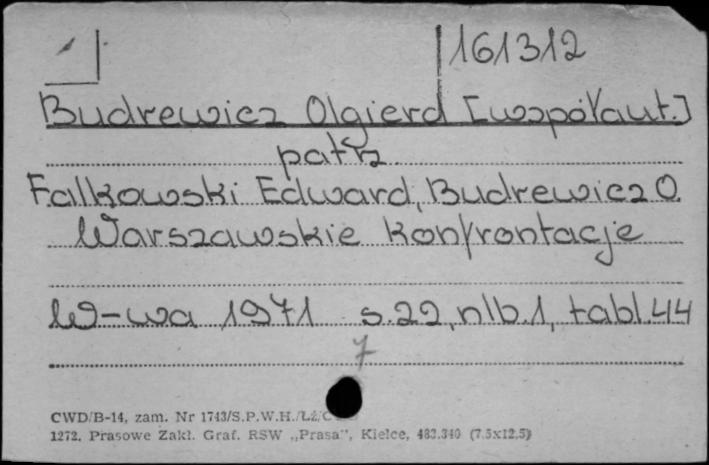 1 161312
Budrewicz Olgierd [współaut.]
patrz
Falkowski Edward, Budrewicz O.
Warszawskie Konfrontacje
W-wa 1971 s.22, nlb.1, tabl.44
7
CWD/B-14, zam. Nr 1743/S.P.W.H./Lż/C
1272. Prasowe Zakł. Graf. RSW „Prasa”, Kielce, 483.340 (7.5x12.5)